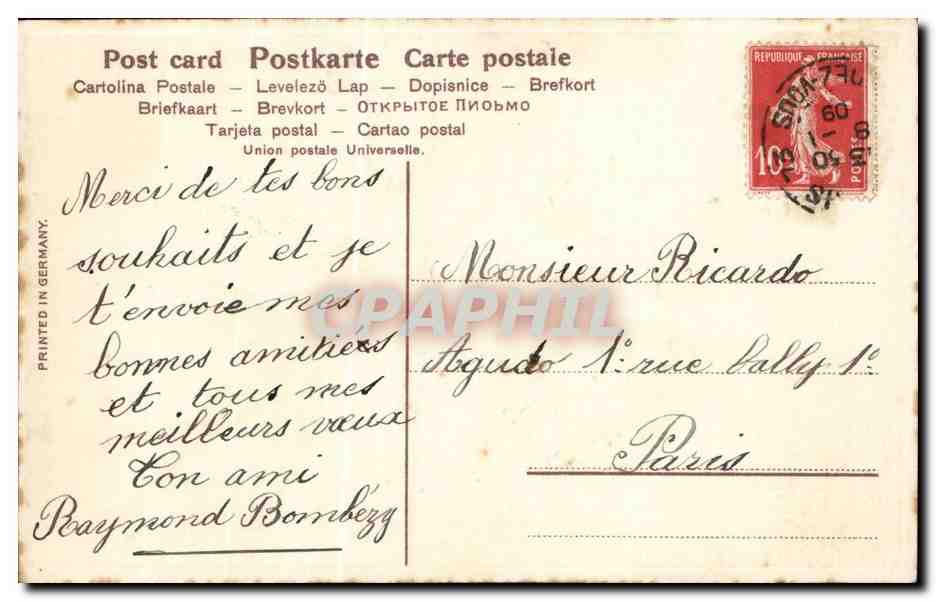 Post card Postkarte Carte postale
Cartolina Postale – Levelező Lap – Dopisnice – Brefkort
Briefkaart – Brevkort – ОТКРЫТОЕ ПИСЬМО
Tarjeta postal – Cartao postal
Union postale Universelle.
PRINTED IN GERMANY.
Merci de tes bons
souhaits et je
t'envoie mes
bonnes amitiées
et tous mes
meilleurs vœux
Ton ami
Raymond Bombézy
REPUBLIQUE FRANÇAISE
10
POSTES
Monsieur Ricardo
Agudo 1º rue Bally 1º
Paris
CPAPHIL